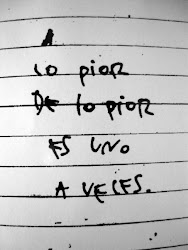 A
lo pior
De lo pior
ES UNO
A VECES.